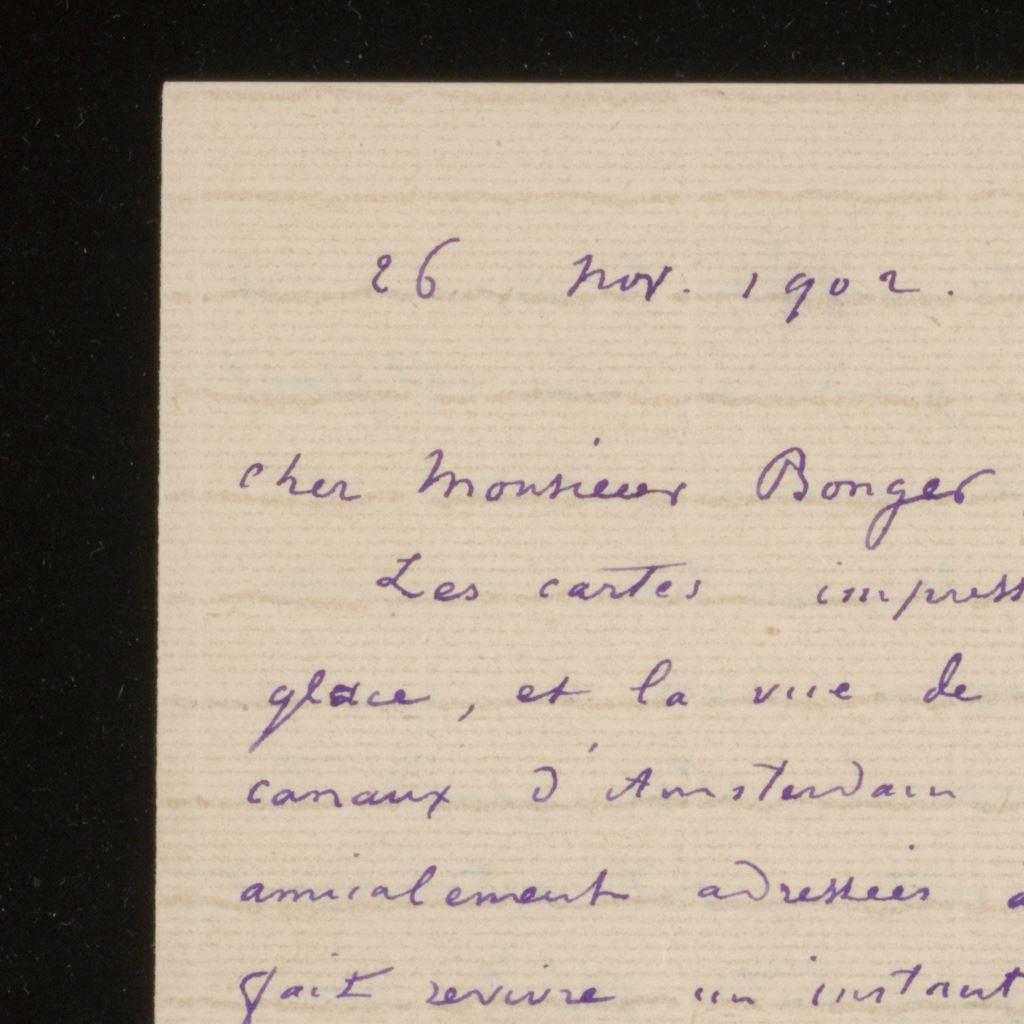 26 Nov. 1902.
cher Monsieur Bonger,
Les cartes impress
glace, et la vue de
canaux d'Amsterdam
amicalement adressées
fait revivre un instant